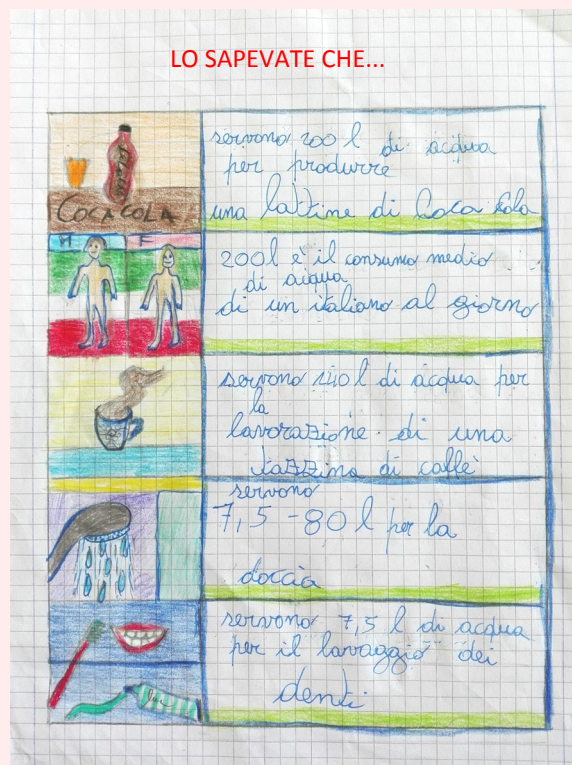 LO SAPEVATE CHE...
servono 200 l di acqua
per produrre
una lattine di Coca Cola
COCA COLA
M F
200l è il consumo medio
di acqua
di un italiano al giorno
servono 140 l di acqua per
la
lavorazione di una
tazzina di caffè
servono
7,5 - 80 l per la
doccia
servono 7,5 l di acqua
per il lavaggio dei
denti